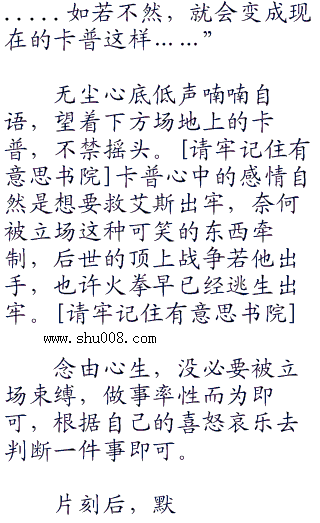 .....如若不然，就会变成现
在的卡普这样……”
无尘心底低声喃喃自
语，望着下方场地上的卡
普，不禁摇头。[请牢记住有
意思书院]卡普心中的感情自
然是想要救艾斯出牢，奈何
被立场这种可笑的东西牵
制，后世的顶上战争若他出
手，也许火拳早已经逃生出
牢。[请牢记住有意思书院]
www.shu008.com
念由心生，没必要被立
场束缚，做事率性而为即
可，根据自己的喜怒哀乐去
判断一件事即可。
片刻后，默